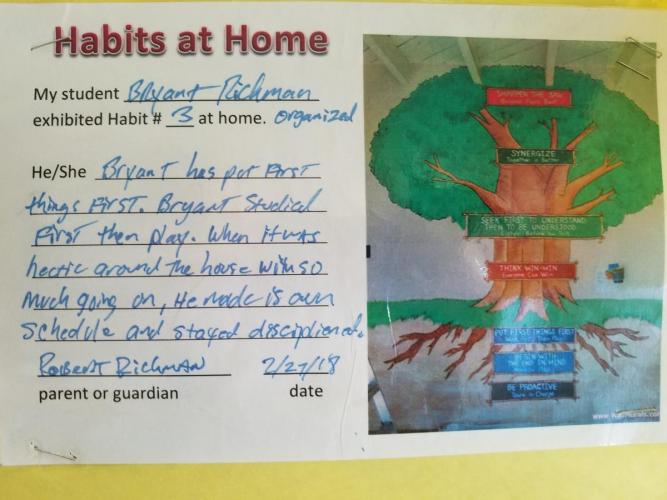 Habits at Home
My student Bryant Richman
exhibited Habit # 3 at home. organized
He/She Bryant has put First
things First. Bryant Studied
First then play. When it was
hectic around the house with so
much going on, He made is own
Schedule and stayed discipiened.
Robert Richman 2/27/18
parent or guardian date
SHARPEN THE SAW
SYNERGIZE
Together is Better
SEEK FIRST TO UNDERSTAND
THEN TO BE UNDERSTOOD
THINK WIN-WIN
Everyone Can Win
PUT FIRST THINGS FIRST
Work First Then Play
BEGIN WITH
THE END IN MIND
BE PROACTIVE
You're in Charge